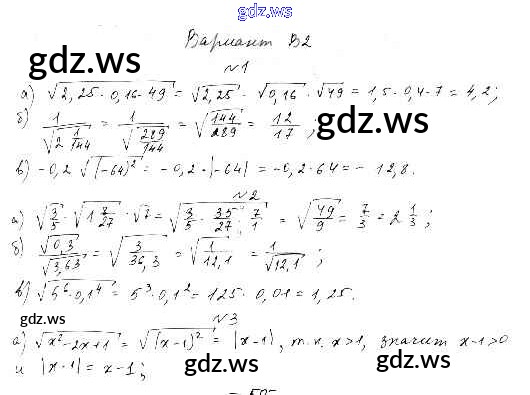 gdz.ws
Вариант В2
gdz.ws
gdz.ws
№1
а) √2,25·0,16·49 = √2,25 · √0,16 · √49 = 1,5·0,4·7 = 4,2;
б) 1/√(2 1/144) = 1/√(289/144) = √(144/289) = 12/17;
в) -0,2 √(-64)² = -0,2·|-64| = -0,2·64 = -12,8.
№2
а) √(3/5) · √(1 8/27) · √7 = √(3/5 · 35/27 · 7/1) = √(49/9) = 7/3 = 2 1/3;
б) √0,3/√3,63 = √(3/36,3) = √(1/12,1) = 1/√12,1;
в) √(5⁶·0,1⁴) = 5³·0,1² = 125·0,01 = 1,25.
gdz.ws
№3
а) √(x²-2x+1) = √(x-1)² = |x-1|, т.к. x>1, значит x-1>0
gdz.ws
gdz.ws
и |x-1| = x-1;